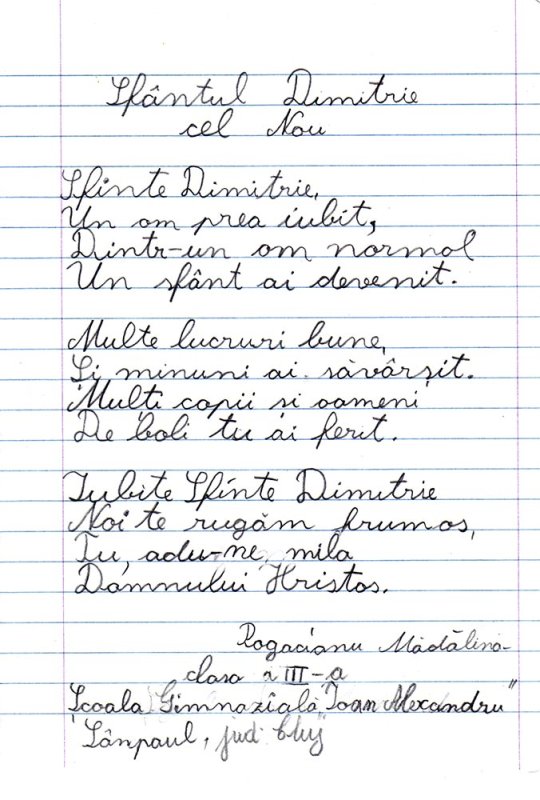 Sfântul Dimitrie
cel Nou
Sfinte Dimitrie,
Un om prea iubit,
Dintr-un om normal
Un sfânt ai devenit.
Multe lucruri bune,
Și minuni ai săvârșit.
Multi copii si oameni
De boli tu ai ferit.
Iubite Sfinte Dimitrie
Noi te rugăm frumos,
Tu, adu-ne, mila
Domnului Hristos.
Rogacianu Mădălina-
clasa a III-a
Școala Gimnazială "Ioan Alexandru"
Sânpaul, jud Cluj